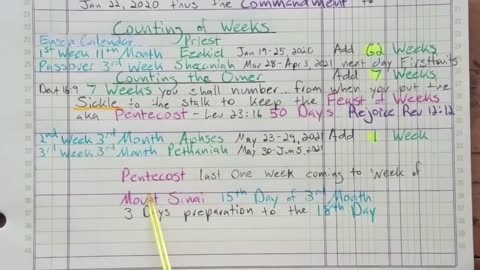 Jan 22, 2020 thus the Commandment to
Counting of Weeks
Enoch Calendar Priest
1st Week 11th Month Ezekiel Jan 19-25, 2020 Add 62 Weeks
Passover 3rd Week Shecaniah Mar 28-Apr 3, 2021 next day Firstfruits
Counting the Omer Add 7 Weeks
Deut 16:9 7 Weeks you shall number... from when you put the
Sickle to the stalk to keep the Feast of Weeks
aka Pentecost - Lev 23:16 50 Days Rejoice Rev 12:12
2nd Week 3rd Month Aphses May 23-29, 2021 Add 1 Week
3rd Week 3rd Month Pethahiah May 30-Jun 5, 2021
Pentecost last One Week coming to Week of
Mount Sinai 15th Day of 3rd Month
3 Days preparation to the 18th Day